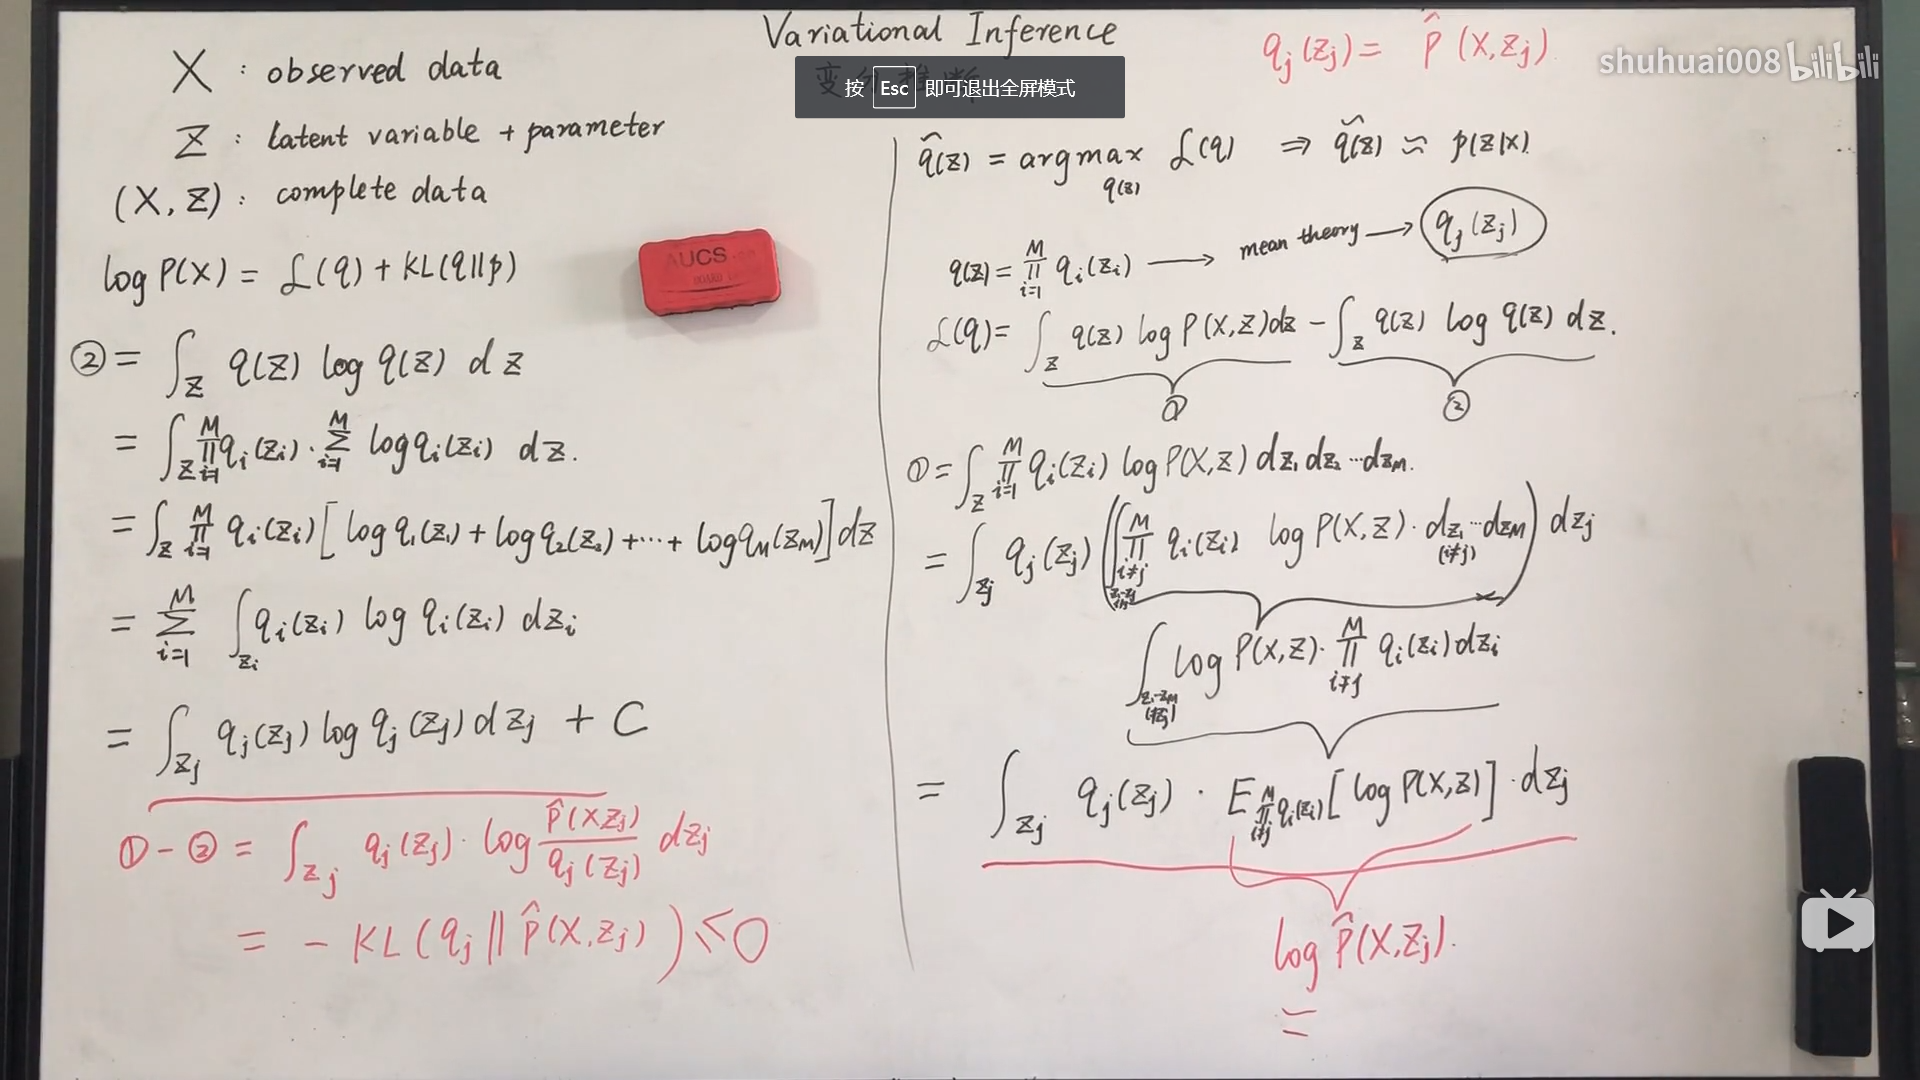 Variational Inference
变分推断
按 Esc 即可退出全屏模式
shuhuai008 bilibili
X : observed data
Z : latent variable + parameter
(X, Z) : complete data
log P(X) = L(q) + KL(q||p)
② = ∫_Z q(Z) log q(Z) dz
= ∫_Z ∏_{i=1}^M q_i(z_i) · ∑_{i=1}^M log q_i(z_i) dz.
= ∫_Z ∏_{i=1}^M q_i(z_i) [log q_1(z_1) + log q_2(z_2) + ··· + log q_M(z_M)] dz
= ∑_{i=1}^M ∫_{z_i} q_i(z_i) log q_i(z_i) dz_i
= ∫_{z_j} q_j(z_j) log q_j(z_j) dz_j + C
① - ② = ∫_{z_j} q_j(z_j) · log P̂(X,z_j) / q_j(z_j) dz_j
= - KL(q_j || P̂(X,z_j)) ≤ 0
AUCS
q_j(z_j) = P̂(X,z_j).
q̂(z) = argmax_{q(z)} L(q) ⇒ q̂(z) ≈ p(z|x).
q(z) = ∏_{i=1}^M q_i(z_i) → mean theory → q_j(z_j)
L(q) = ∫_Z q(z) log P(X,Z) dz - ∫_Z q(z) log q(z) dz.
① ②
① = ∫_Z ∏_{i=1}^M q_i(z_i) log P(X,Z) dz_1 dz_2 ··· dz_M.
= ∫_{z_j} q_j(z_j) (∫ ∏_{i≠j}^M q_i(z_i) log P(X,Z) · dz_1 ··· dz_M (i≠j)) dz_j
∫_{z_1-z_M (≠z_j)} log P(X,Z) · ∏_{i≠j}^M q_i(z_i) dz_i
= ∫_{z_j} q_j(z_j) · E_{∏_{i≠j}^M q_i(z_i)} [log P(X,Z)] · dz_j
log P̂(X,z_j).